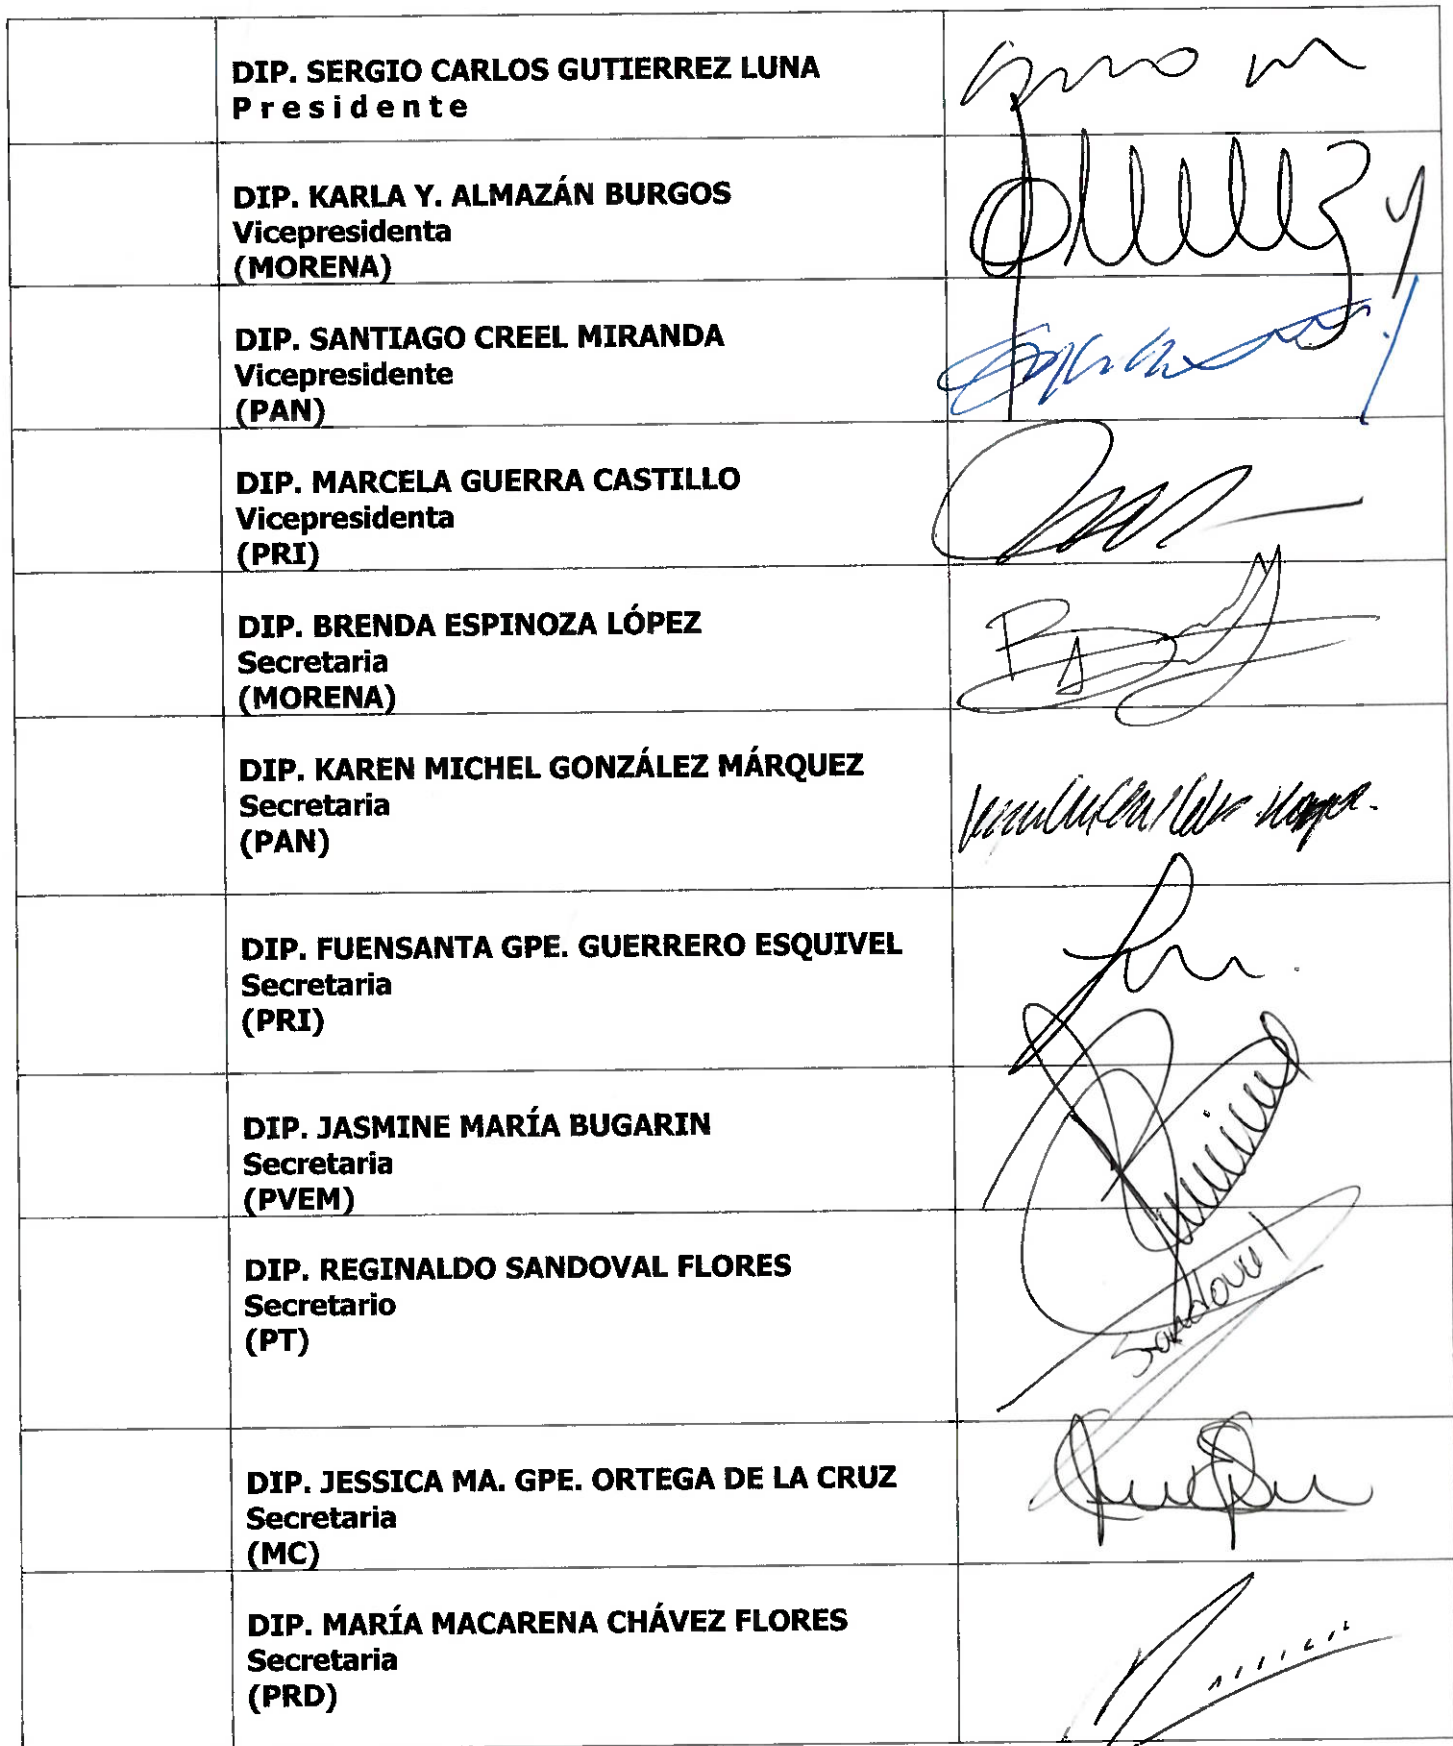 DIP. SERGIO CARLOS GUTIERREZ LUNA
Presidente
DIP. KARLA Y. ALMAZÁN BURGOS
Vicepresidenta
(MORENA)
DIP. SANTIAGO CREEL MIRANDA
Vicepresidente
(PAN)
DIP. MARCELA GUERRA CASTILLO
Vicepresidenta
(PRI)
DIP. BRENDA ESPINOZA LÓPEZ
Secretaria
(MORENA)
DIP. KAREN MICHEL GONZÁLEZ MÁRQUEZ
Secretaria
(PAN)
DIP. FUENSANTA GPE. GUERRERO ESQUIVEL
Secretaria
(PRI)
DIP. JASMINE MARÍA BUGARIN
Secretaria
(PVEM)
DIP. REGINALDO SANDOVAL FLORES
Secretario
(PT)
Sandoval
DIP. JESSICA MA. GPE. ORTEGA DE LA CRUZ
Secretaria
(MC)
DIP. MARÍA MACARENA CHÁVEZ FLORES
Secretaria
(PRD)